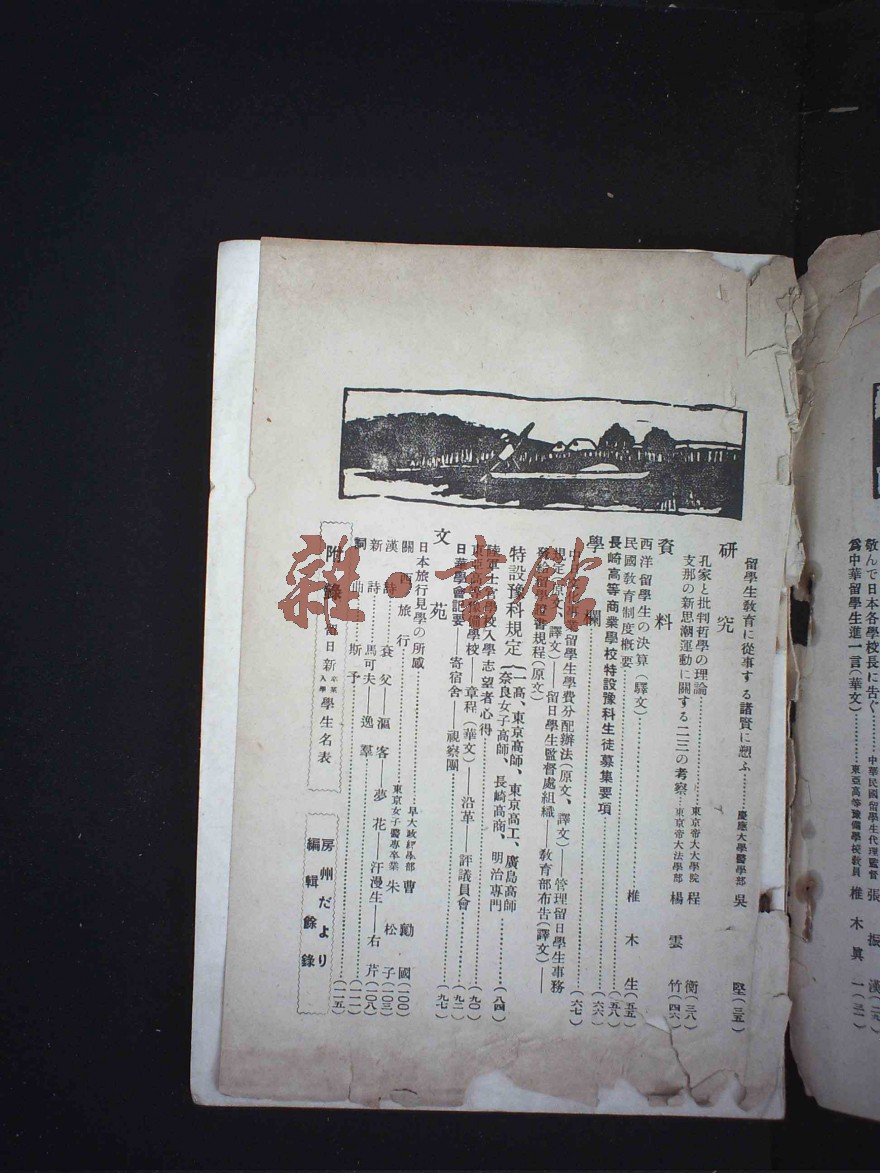 敬んで日本各學校長に吿ぐ 中華民國留學生代理監督 張振漢
爲中華留學生進一言(華文) 東亞高等豫備學校敎員 椎木眞一
留學生敎育に從事する諸賢に愬ふ 慶應大學醫學部 吳堅(三五)
硏究
孔家と批判哲學の理論 東京帝大大學院 程衡(三八)
支那の新思潮運動に關する二三の考察 東京帝大法學部 楊雲竹(四六)
資料
西洋留學生の決算(驛文) 椎木生(五五)
民國敎育制度槪要(五八)
長崎高等商業學校特設豫科生徒募集要項(六六)
學欄
留學生學費分配辦法(原文、譯文)——管理留日學生事務(六七)
規定(原文、譯文)——留日學生監督處組織——敎育部布吿(譯文)——
發給留學證書規程(原文)
特設豫科規定(一高、東京高師、東京高工、廣島高師
奈良女子高師、長崎高商、明治專門(八四)
陸軍士官學校入學志望者心得(九〇)
東亞高等豫備學校——章程(華文)——沿革——評議員會(九二)
日華學會記要——寄宿舍——視察團(九七)
文苑
日本旅行見學の所感 早大政經學部 曹勱國(一〇〇)
關西旅行 東京女子醫專卒業 朱松子(一〇三)
漢詩 袞父——漚客——夢花——汗漫生——右芹(一〇八)
新詩 馬可夫——逸羣(一一一)
詞 岫斯予(一一五)
附錄 留日新 卒業 入學 學生名表
房州だより
編輯餘錄
雜·書館